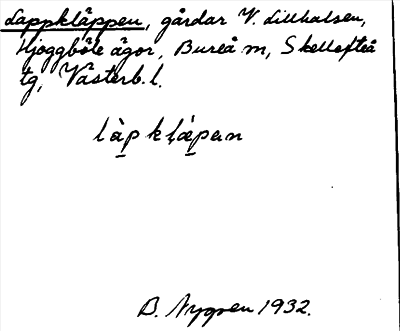 Lappkläppen, gårdar V. Lillhalsen,
Hjoggböle ägor, Bureå m, Skellefteå
tg, Västerb. l.
làp̱kḷáp̱en
B. Nygren 1932.